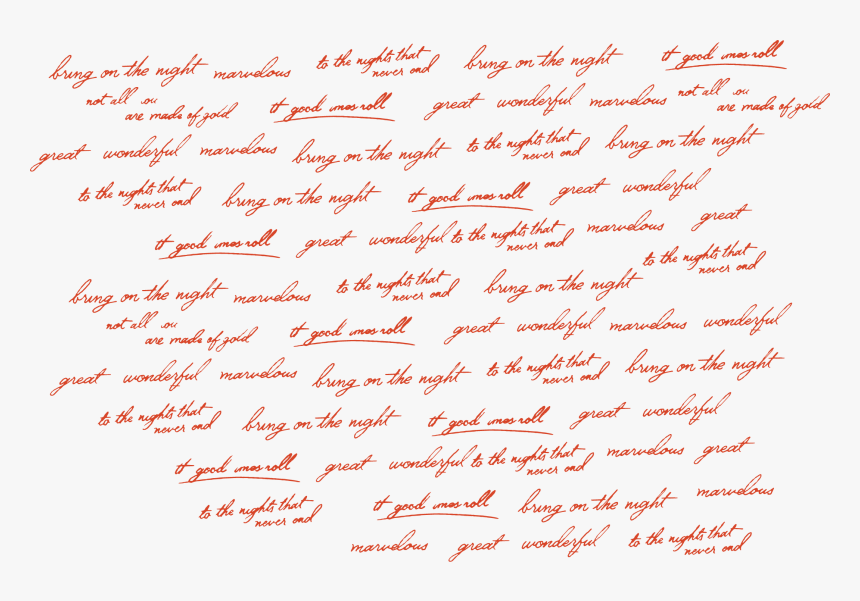 bring on the night marvelous to the nights that never end bring on the night good imes roll
not all ou are made of gold good imes roll great wonderful marvelous not all ou are made of gold
great wonderful marvelous bring on the night to the nights that never end bring on the night
to the nights that never end bring on the night good imes roll great wonderful
good imes roll great wonderful to the nights that never end marvelous great
bring on the night marvelous to the nights that never end bring on the night to the nights that never end
not all ou are made of gold good imes roll great wonderful marvelous wonderful
great wonderful marvelous bring on the night to the nights that never end bring on the night
to the nights that never end bring on the night good imes roll great wonderful
good imes roll great wonderful to the nights that never end marvelous great
to the nights that never end good imes roll bring on the night marvelous
marvelous great wonderful to the nights that never end